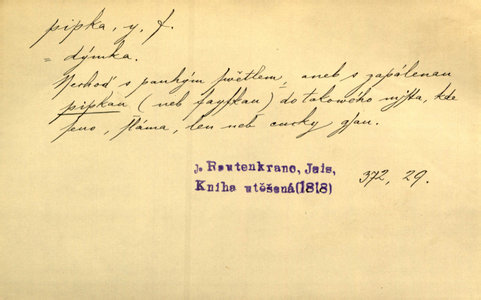 pipka, y, f.
= dýmka.
Nechoď s pauhým swětlem, aneb s zapálenau
pipkau (neb fayfkau) do takového mjsta, kde
seno, sláma, len neb caucky gsau.
J. Rautenkranc, Jais, 372, 29.
Kniha utěšená (1818)